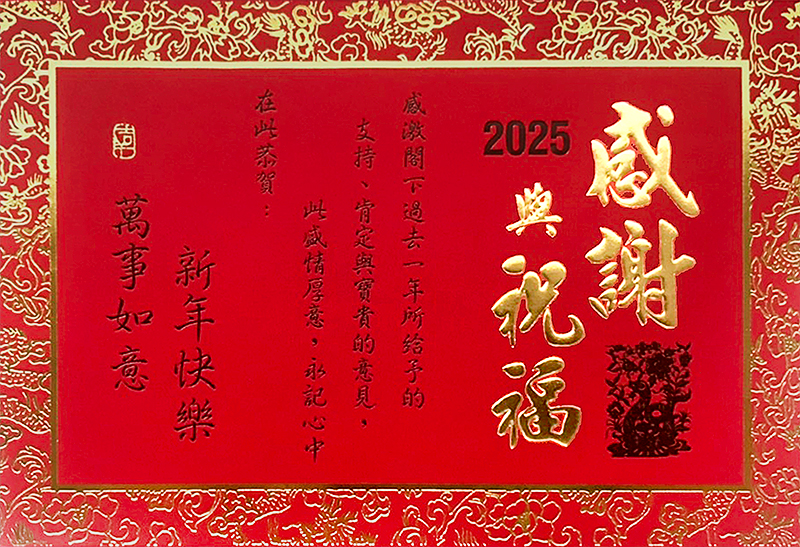 感謝
2025
與
祝福
感激閣下過去一年所給予的
支持、肯定與寶貴的意見，
此感情厚意，永記心中
在此恭賀：
新年快樂
萬事如意